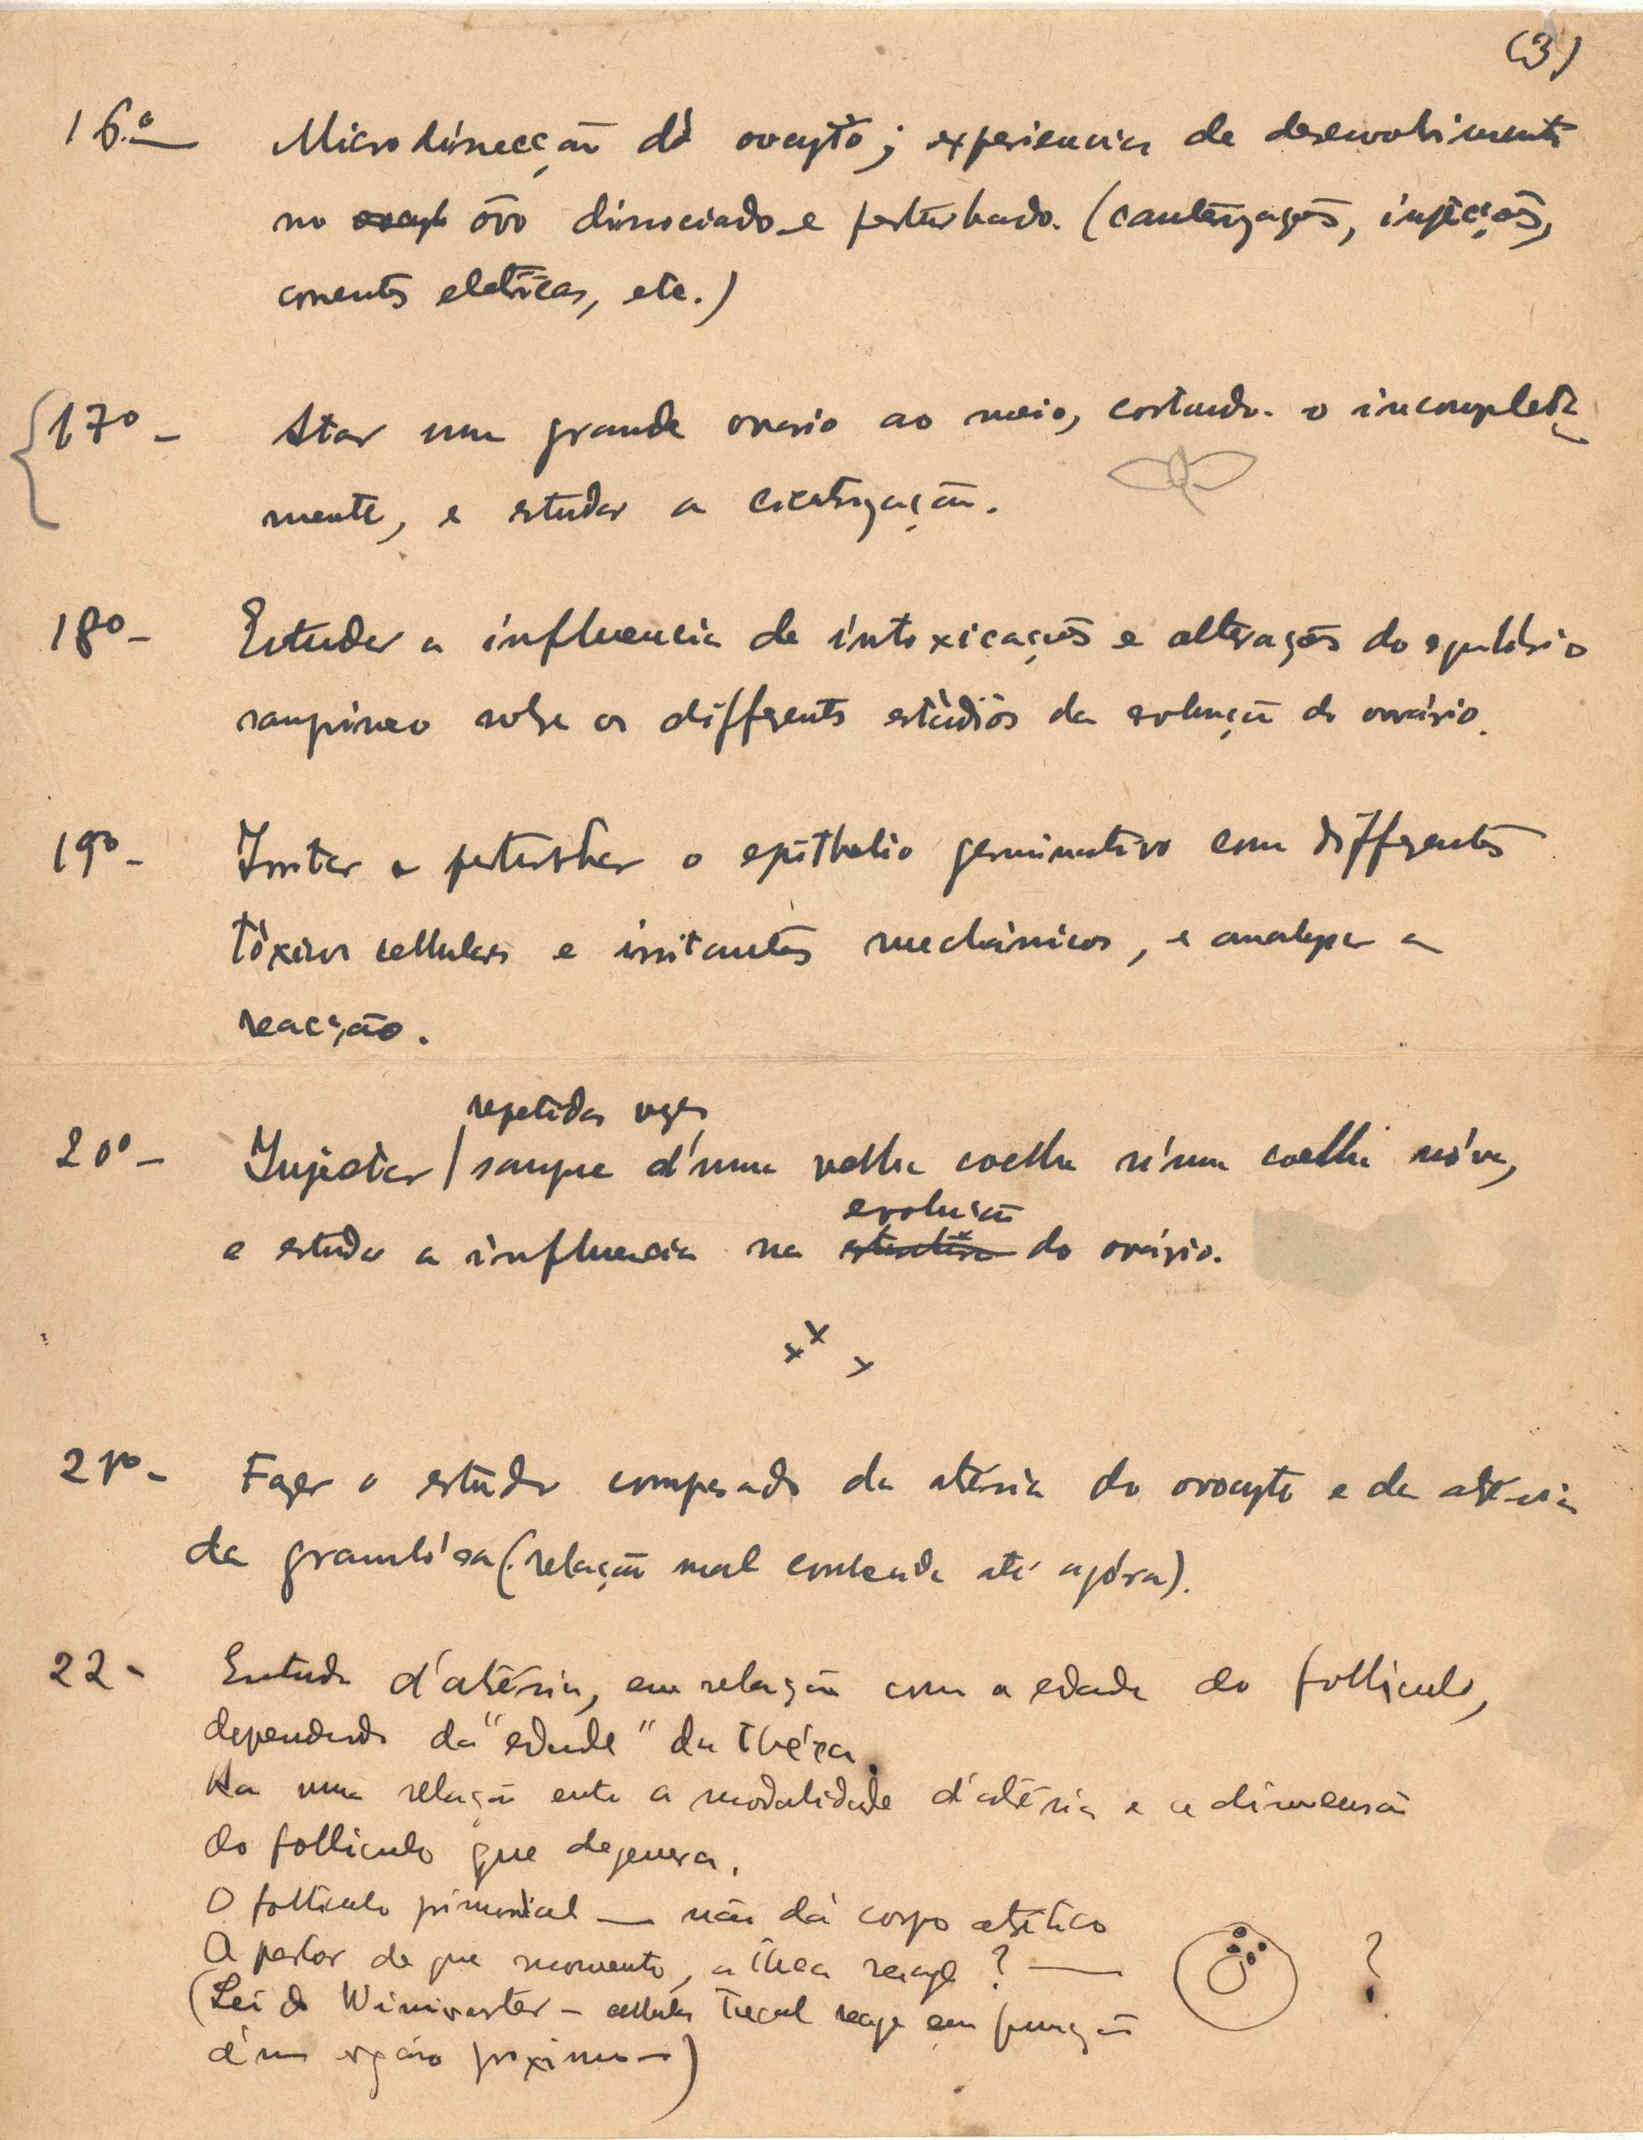 (3)
16.º — Microdissecção do ovocyto; experiencia de desenvolvimento
no ovocyto ôvo dissociado e perturbado. (cauterizações, injecções,
correntes eletricas, etc.)
17º - Atar um grande ovario ao meio, cortando-o incompleta
mente, e estudar a cicatrização.
18º - Estudar a influencia de intoxicações e alterações do equilibrio
sanguineo sobre os differentes estádios da evolução do ovário.
19º - Irritar e perturbar o epithelio germinativo com differentes
tóxicos cellulares e irritantes mechánicos, e analysar a
reacção.
repetidas vezes
20º - Injectar / sangue d'uma velha coelha n'uma coelha nóva,
evolução
e estudar a influencia na estructura do ovário.
21º - Fazer o estudo comparado da atrésia do ovocyto e da atrésia
da granulósa (relação mal conhecida até agóra).
22 - Estudo d'atrésia, em relação com a edade do folliculo,
dependendo da "edade" da théca.
Ha uma relação entre a modalidade d'atrésia e a dimensão
do folliculo que degenera.
O folliculo primordial — não dá corpo atrético
A partir de que momento, a théca reage? —
?
(Lei de Winiwarter - cellula thecal reage em função
d'um orgão proximo -)